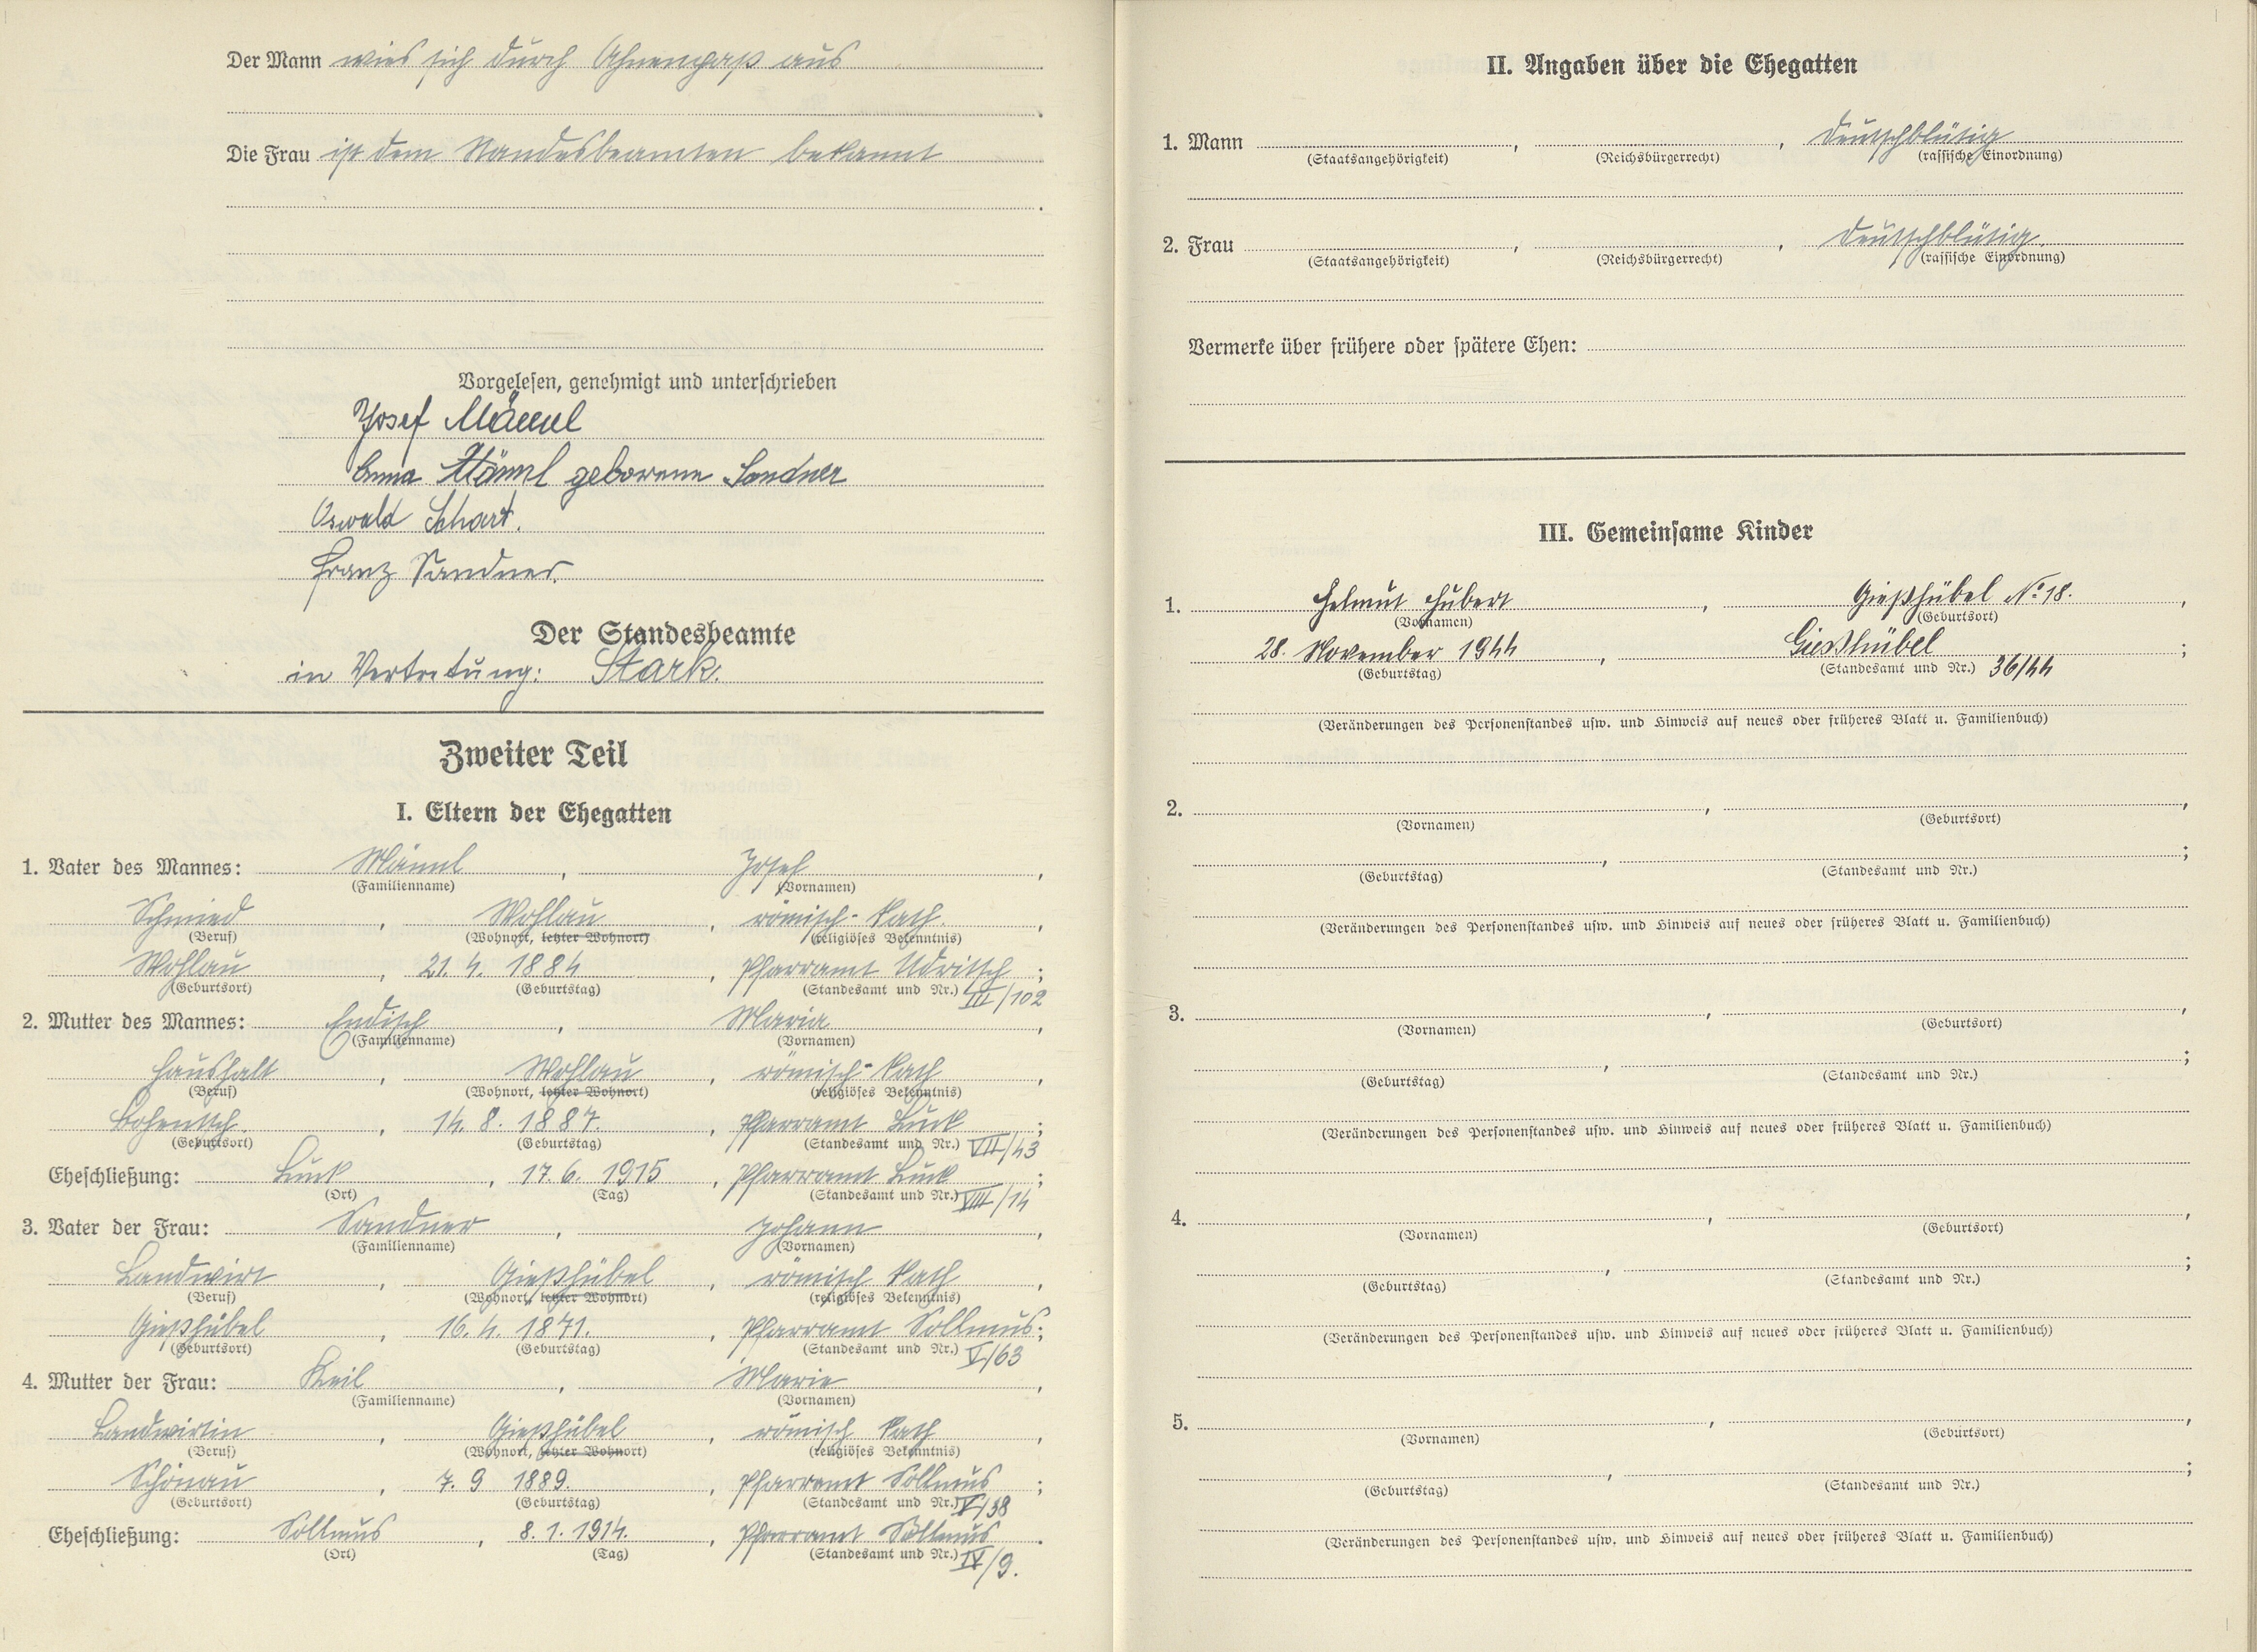 Der Mann wies sich durch Ahnenpaß aus
.
Die Frau ist dem Standesbeamten bekannt
.
Vorgelesen, genehmigt und unterschrieben
Josef Männl
Anna Männl geborene Sandner
Oswald Schart.
Franz Sandner.
Der Standesbeamte
in Vertretung: Stark.
Zweiter Teil
I. Eltern der Ehegatten
1. Vater des Mannes: Männl, Josef,
(Familienname) (Vornamen)
Schmied, Wohlau, römisch-kath.,
(Beruf) (Wohnort, letzter Wohnort) (religiöses Bekenntnis)
Wohlau, 21. 4. 1884, Pfarramt Udritsch;
(Geburtsort) (Geburtstag) (Standesamt und Nr.) III/102
2. Mutter des Mannes: Endisch, Maria,
(Familienname) (Vornamen)
Haushalt, Wohlau, römisch-kath,
(Beruf) (Wohnort, letzter Wohnort) (religiöses Bekenntnis)
14. 8. 1887., Pfarramt Luck;
(Geburtsort) (Geburtstag) (Standesamt und Nr.) VII/43
Eheschließung: Luck, 17. 6. 1915, Pfarramt Luck;
(Ort) (Tag) (Standesamt und Nr.) VIII/14
3. Vater der Frau: Sandner, Johann,
(Familienname) (Vornamen)
Landwirt, Gießhübel, römisch kath,
(Beruf) (Wohnort, letzter Wohnort) (religiöses Bekenntnis)
Gießhübel, 16. 4. 1871., Pfarramt Sollmus;
(Geburtsort) (Geburtstag) (Standesamt und Nr.) V/63
4. Mutter der Frau: Keil, Marie,
(Familienname) (Vornamen)
Landwirtin, Gießhübel, römisch kath,
(Beruf) (Wohnort, letzter Wohnort) (religiöses Bekenntnis)
Schönau, 7. 9 1889., Pfarramt Sollmus;
(Geburtsort) (Geburtstag) (Standesamt und Nr.) V/38
Eheschließung: Sollmus, 8. 1. 1914., Pfarramt Sollmus.
(Ort) (Tag) (Standesamt und Nr.) IV/9.
II. Angaben über die Ehegatten
1. Mann , , deutschblütig
(Staatsangehörigkeit) (Reichsbürgerrecht) (rassische Einordnung)
2. Frau , , deutschblütig.
(Staatsangehörigkeit) (Reichsbürgerrecht) (rassische Einordnung)
Vermerke über frühere oder spätere Ehen:
III. Gemeinsame Kinder
1. Helmut Hubert, Gießhübel No 18.,
(Vornamen) (Geburtsort)
28. November 1944, Gießhübel;
(Geburtstag) (Standesamt und Nr.) 36/44
(Veränderungen des Personenstandes usw. und Hinweis auf neues oder früheres Blatt u. Familienbuch)
2. , ,
(Vornamen) (Geburtsort)
, ;
(Geburtstag) (Standesamt und Nr.)
(Veränderungen des Personenstandes usw. und Hinweis auf neues oder früheres Blatt u. Familienbuch)
3. , ,
(Vornamen) (Geburtsort)
, ;
(Geburtstag) (Standesamt und Nr.)
(Veränderungen des Personenstandes usw. und Hinweis auf neues oder früheres Blatt u. Familienbuch)
4. , ,
(Vornamen) (Geburtsort)
, ;
(Geburtstag) (Standesamt und Nr.)
(Veränderungen des Personenstandes usw. und Hinweis auf neues oder früheres Blatt u. Familienbuch)
5. , ,
(Vornamen) (Geburtsort)
, ;
(Geburtstag) (Standesamt und Nr.)
(Veränderungen des Personenstandes usw. und Hinweis auf neues oder früheres Blatt u. Familienbuch)